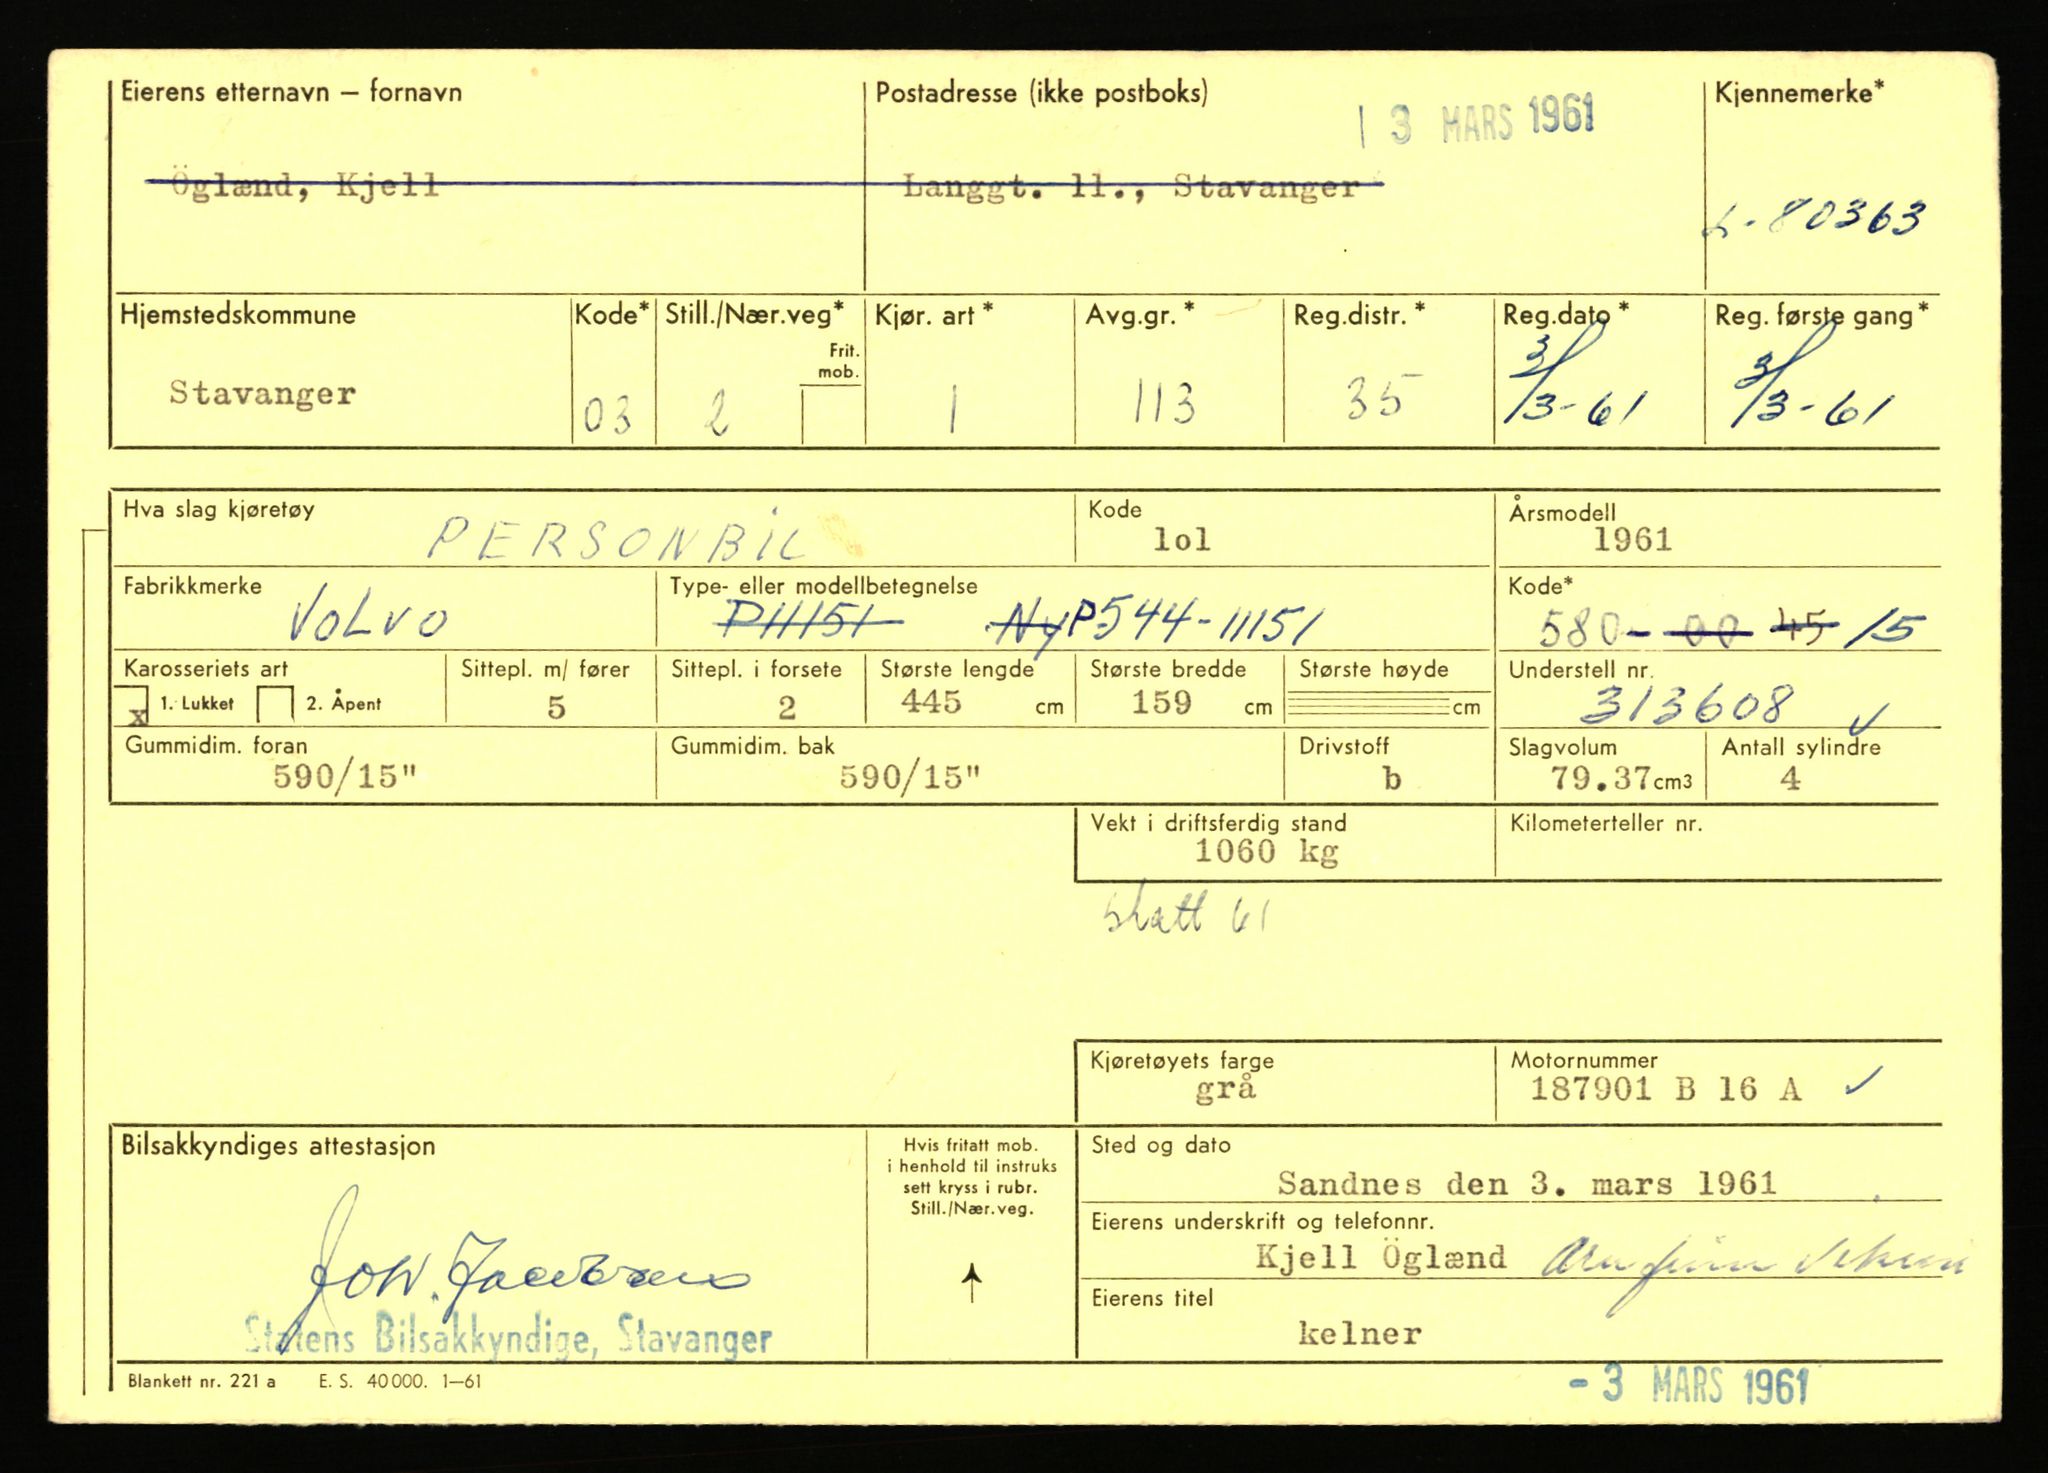 Eierens etternavn – fornavn
Postadresse (ikke postboks)
Kjennemerke*
13 MARS 1961
Öglænd, Kjell
Langgt. 11., Stavanger
L-80363
Hjemstedskommune
Kode*
Still./Nær.veg*
Frit. mob.
Kjør. art*
Avg.gr.*
Reg.distr.*
Reg.dato*
Reg. første gang*
Stavanger
03
2
1
113
35
3/3-61
3/3-61
Hva slag kjøretøy
PERSONBIL
Kode
lol
Årsmodell
1961
Fabrikkmerke
VOLVO
Type- eller modellbetegnelse
P11151 Ny P544-11151
Kode*
580- 00 45 15
Karosseriets art
x 1. Lukket 2. Åpent
Sittepl. m/ fører
5
Sittepl. i forsete
2
Største lengde
445 cm
Største bredde
159 cm
Største høyde
cm
Understell nr.
313608 ✓
Gummidim. foran
590/15"
Gummidim. bak
590/15"
Drivstoff
b
Slagvolum
79.37 cm3
Antall sylindre
4
Vekt i driftsferdig stand
1060 kg
Kilometerteller nr.
skatt 61
Kjøretøyets farge
grå
Motornummer
187901 B 16 A ✓
Bilsakkyndiges attestasjon
Statens Bilsakkyndige, Stavanger
Hvis fritatt mob.
i henhold til instruks
sett kryss i rubr.
Still./Nær.veg.
Sted og dato
Sandnes den 3. mars 1961
Eierens underskrift og telefonnr.
Kjell Öglænd
Eierens titel
kelner
Blankett nr. 221 a E. S. 40000. 1–61
- 3 MARS 1961